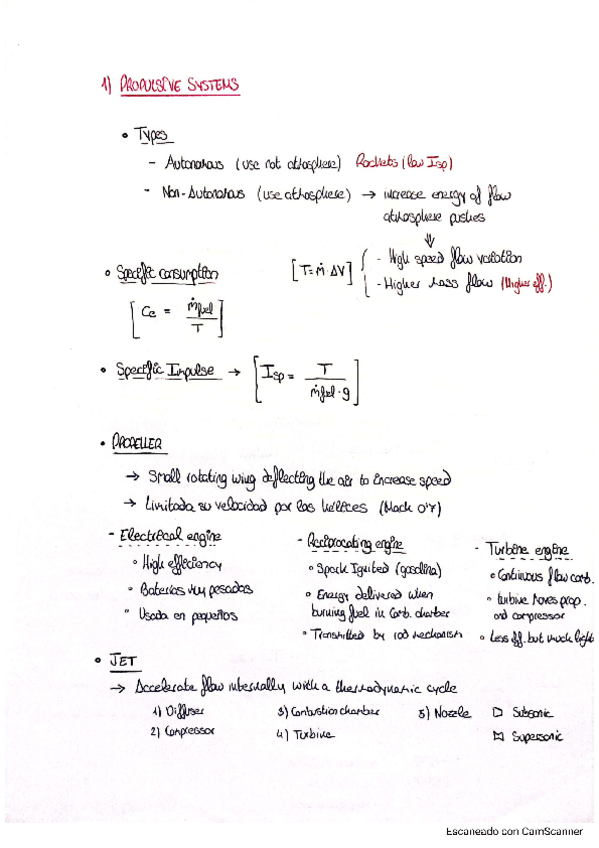 1) PROPULSIVE SYSTEMS
• Types
- Autonomous (use not atmosphere) Rockets (low Isp)
- Non-Autonomous (use atmosphere) → increase energy of flow
atmosphere pushes
⇓
[T = ṁ · ΔV] { - High speed flow variation
- Higher mass flow (Higher eff.)
• Specific consumption
[Ce = ṁfuel / T]
• Specific Impulse → [Isp = T / ṁfuel · g]
• PROPELLER
→ Small rotating wing deflecting the air to increase speed
→ Limitada su velocidad por las hélices (Mach 0'7)
- Electrical engine
• High efficiency
• Baterías muy pesadas
• Usada en pequeños
- Reciprocating engine
• Spark Ignited (gasolina)
• Energy delivered when
burning fuel in comb. chamber
• Transmitted by rod mechanism
- Turbine engine
• Continuous flow comb.
• turbine moves prop.
and compressor
• Less eff. but much light
• JET
→ Accelerate flow internally with a thermodynamic cycle
1) Diffuser 3) Combustion chamber 5) Nozzle Subsonic
2) Compressor 4) Turbine Supersonic
Escaneado con CamScanner